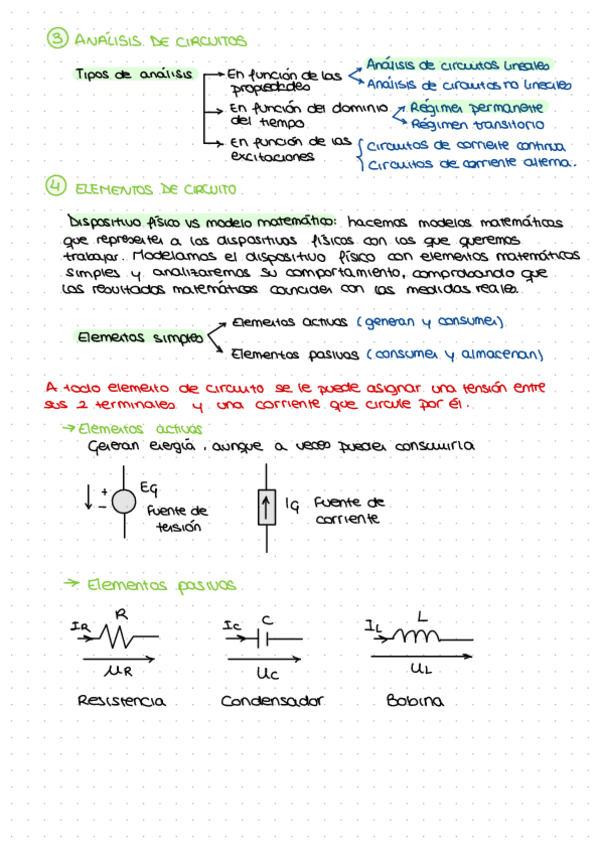 3 ANÁLISIS DE CIRCUITOS
Tipos de análisis
En función de las propiedades
Análisis de circuitos lineales
Análisis de circuitos no lineales
En función del dominio del tiempo
Régimen permanente
Régimen transitorio
En función de las excitaciones
Circuitos de corriente continua
Circuitos de corriente alterna.
4 ELEMENTOS DE CIRCUITO
Dispositivo físico vs modelo matemático: hacemos modelos matemáticos
que representen a los dispositivos físicos con los que queremos
trabajar. Modelamos el dispositivo físico con elementos matemáticos
simples y analizaremos su comportamiento, comprobando que
los resultados matemáticos coinciden con las medidas reales.
Elementos simples
Elementos activos (generan y consumen)
Elementos pasivos (consumen y almacenan)
A todo elemento de circuito se le puede asignar una tensión entre
sus 2 terminales y una corriente que circule por él.
→ Elementos activos
Generan energía, aunque a veces pueden consumirla
+
-
EG
Fuente de
tensión
IG
Fuente de
corriente
→ Elementos pasivos
IR
R
UR
Resistencia
IC
C
UC
Condensador
IL
L
UL
Bobina